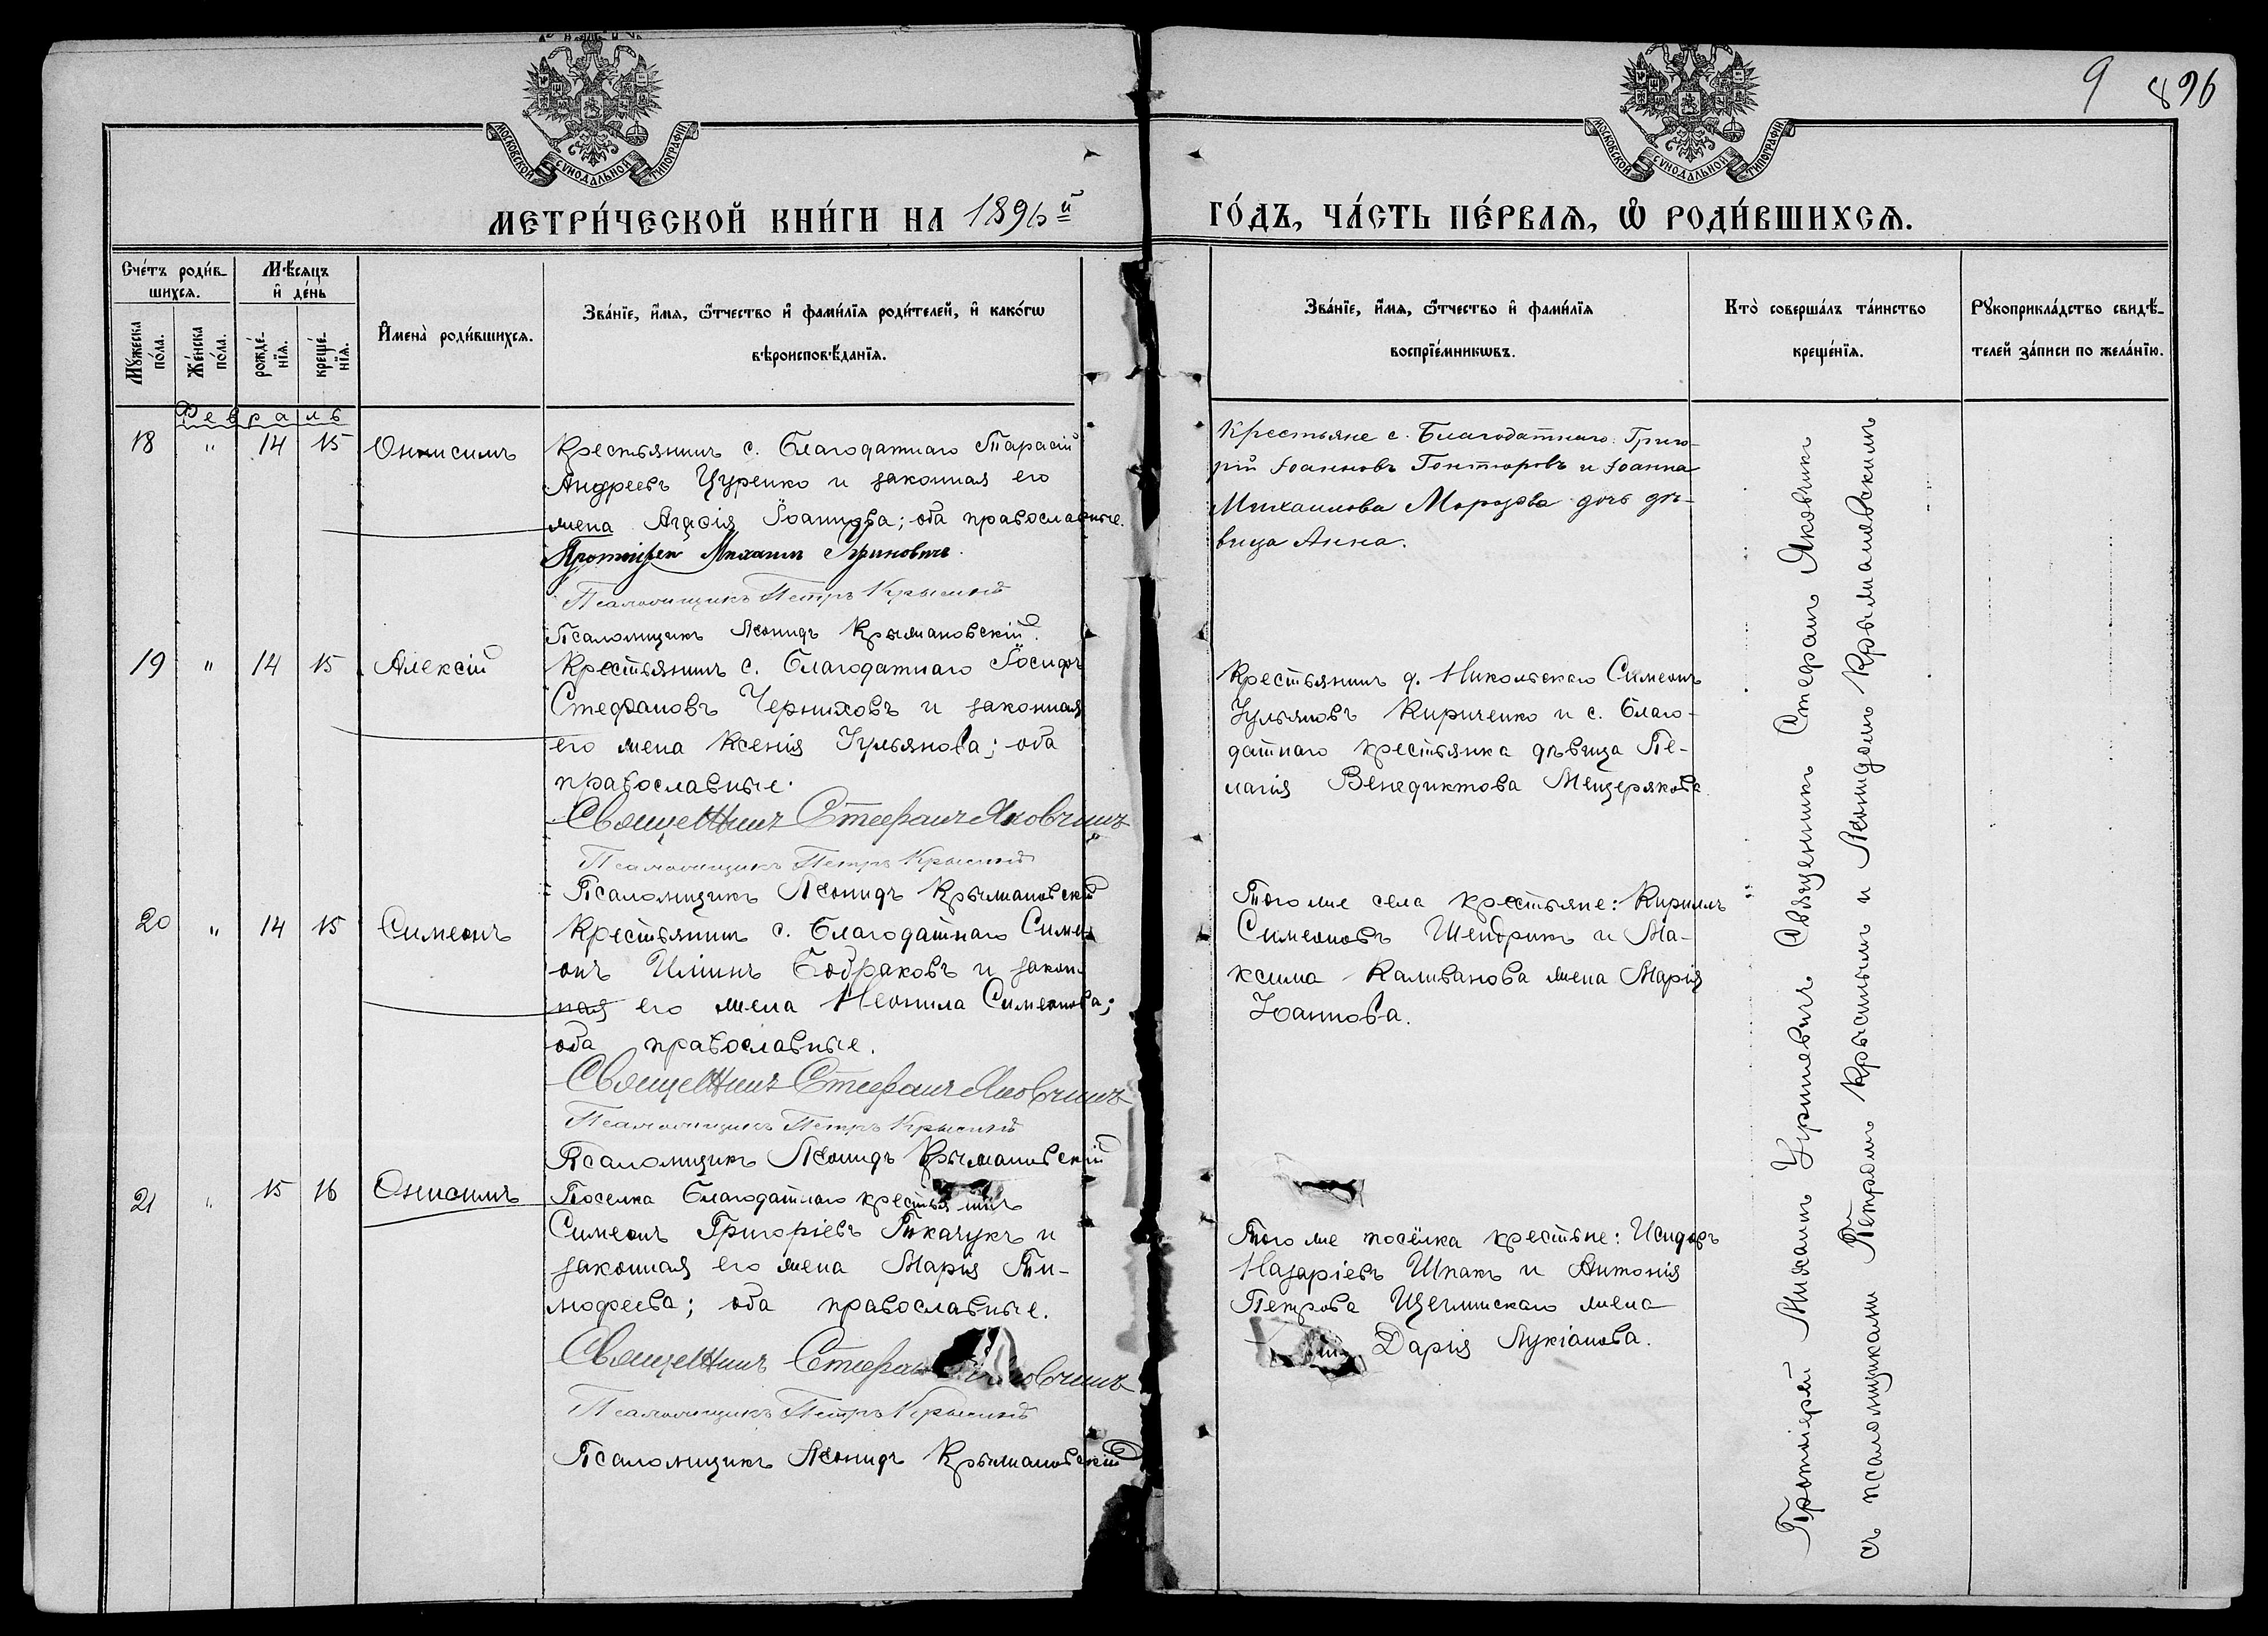 9 896
МОСКОВСКОЙ СѴНОДАЛЬНОЙ ТИПОГРАФІИ
МОСКОВСКОЙ СѴНОДАЛЬНОЙ ТИПОГРАФІИ
МЕТРИ́ЧЕСКОЙ КНИ́ГИ НА 1896й ГО́ДЪ, ЧА́СТЬ ПЕ́РВАѦ, Ѡ҆ РОДИ́ВШИХСѦ.
Сче́тъ роди́в-
шихсѧ.
Мꙋ́жеска
по́ла.
Же́нска
по́ла.
М́ѣсѧцъ
и҆ де́нь
рожде́-
нїѧ.
креще́-
нїѧ.
И҆мена̀ роди́вшихсѧ.
Зва́нїе, и҆́мѧ, ѻ҆́тчество и҆ фами́лїѧ роди́телей, и҆ како́гѡ
вѣроисповѣ́данїѧ.
Зва́нїе, и҆́мѧ, ѻ҆́тчество и҆ фами́лїѧ
воспрїе́мникѡвъ.
Кто̀ соверша́лъ та́инство
креще́нїѧ.
Рꙋкоприкла́дство свидѣ́-
телей за́писи по жела́нїю.
Февраль
18 " 14 15 Онисимъ
Крестьянинъ с. Благодатнаго Тарасій
Андреевъ Цуренко и законная его
жена Агафія Іоаннова; оба православные.
Протоіерей Михаилъ
Псаломщикъ Петръ Крысинъ
Псаломщикъ Леонидъ Крымановскій.
Крестьяне с. Благодатнаго: Григо-
рій Іоанновъ Гонтаровъ и Іоанна
Михаилова Морозова дочь дѣ-
вица Анна.
19 " 14 15 Алексій
Крестьянинъ с. Благодатнаго Іосифъ
Стефановъ Черниховъ и законная
его жена Ксенія Іульянова; оба
православные.
Священникъ Стефанъ Яковчикъ
Псаломщикъ Петръ Крысинъ
Псаломщикъ Леонидъ Крымановскій
Крестьянинъ д. Никольскаго Симеонъ
Іульяновъ Кириченко и с. Благо-
датнаго крестьянка дѣвица Пе-
лагія Венедиктова Мещерякова.
20 " 14 15 Симеонъ
Крестьянинъ с. Благодатнаго Симе-
онъ Иліинъ Бодраковъ и закон-
ная его жена Неонила Симеонова;
оба православные.
Священникъ Стефанъ Яковчикъ
Псаломщикъ Петръ Крысинъ
Псаломщикъ Леонидъ Крымановскій
Того же села крестьяне: Кириллъ
Симеоновъ Шендрикъ и Ма-
ксима Каливанова жена Марія
Іоаннова.
21 " 15 16 Онисимъ
Поселка Благодатнаго крестьянинъ
Симеонъ Григоріевъ Ткачукъ и
законная его жена Марія Ти-
мофеева; оба православные.
Священникъ Стефанъ Яковчикъ
Псаломщикъ Петръ Крысинъ
Псаломщикъ Леонидъ Крымановскій
Того же посёлка крестьяне: Исидоръ
Назаріевъ Шпакъ и Антонія
Петрова Щеглинскаго жена
Дарія Лукіанова.
Протоіерей Михаилъ Священникъ Стефанъ Яковчикъ
съ псаломщиками Петромъ Крысинымъ и Леонидомъ Крымановскимъ